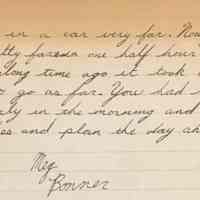 in a car very far. Now
one half hour
long time ago it took
to go as far. You had
ly in the morning and
es and plan the day ah
Meg
Bonner